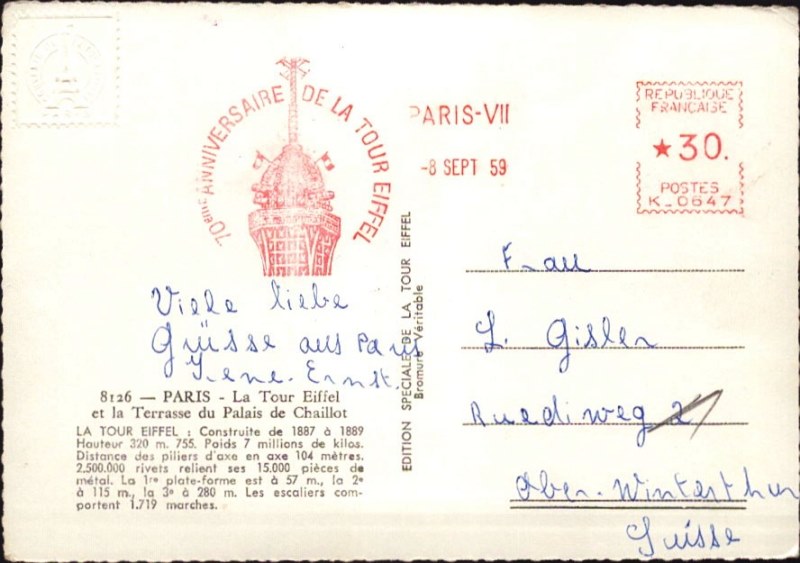 70eme ANNIVERSAIRE DE LA TOUR EIFFEL
PARIS-VII
-8 SEPT 59
REPUBLIQUE
FRANCAISE
★30.
POSTES
K_0647
Viele liebe
Grüsse aus Paris
Irene. Ernst.
8126 — PARIS - La Tour Eiffel
et la Terrasse du Palais de Chaillot
LA TOUR EIFFEL : Construite de 1887 à 1889
Hauteur 320 m. 755. Poids 7 millions de kilos.
Distance des piliers d'axe en axe 104 mètres.
2.500.000 rivets relient ses 15.000 pièces de
métal. La 1re plate-forme est à 57 m., la 2e
à 115 m., la 3e à 280 m. Les escaliers com-
portent 1.719 marches.
EDITION SPECIALE DE LA TOUR EIFFEL
Bromure Véritable
Frau
L. Gisler
Ruediweg
Ober-Winterthur
Suisse